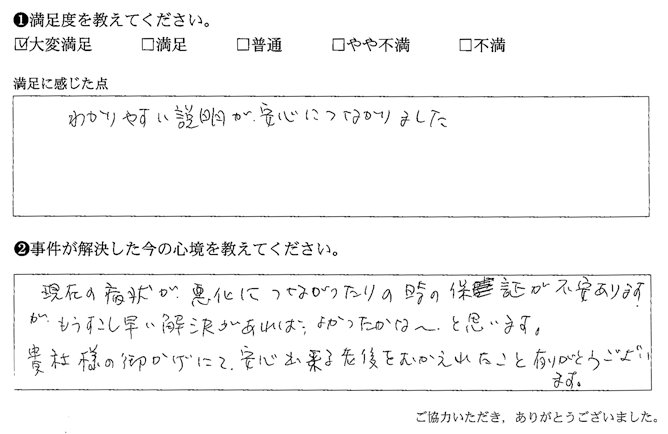 ❶満足度を教えてください。
☑大変満足 □満足 □普通 □やや不満 □不満
満足に感じた点
わかりやすい説明が、安心につながりました
❷事件が解決した今の心境を教えてください。
現在の病状が、悪化につながったりの時の保証が不安あります
が、もうすこし早い解決があれば、よかったかな〜、と思います。
貴社様の御かげにて、安心出来る老後をむかえれたこと有りがとうござい
ます。
ご協力いただき、ありがとうございました。